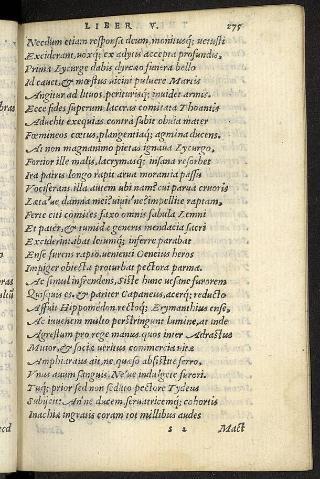 LIBER V. 275
Necdum etiam responsa deum, monitusq; uetusti
Exciderant, uoxq; ex adytis accepta profundis,
Prima Lycurge dabis dyrcæo funera bello
Id cauet, & mœstus uicini puluere Martis
Angitur ad lituos, periturisq; inuidet armis.
Ecce fides superum laceras comitata Thoantis
Aduehit exequias contra subit obuia mater
Fœmineos cœtus, plangentiaq; agmina ducens.
At non magnanimo pietas ignaua Lycurgo,
Fortior ille malis, lacrymasq; insana resorbet
Ira patris longo rapit arua morantia passu
Vociferans. illa autem ubi nam? cui parua cruoris
Læta'ue damna mei? uiuit'ne? impellite raptam,
Ferte citi comites faxo omnis fabula Lemni
Et pater, & tumidæ generis mendacia sacri
Exciderint. ibat letumq; inferre parabat
Ense furens rapto. uenienti Oeneius heros
Impiger obiecta proturbat pectora parma.
Ac simul infrendens, Siste hunc uesane furorem
Quisquis es. & pariter Capaneus, acerq; reducto
Affuit Hippomedon, rectoq; Erymanthius ense,
Ac iuuenem multo perstringunt lumine, at inde
Agrestum pro rege manus. quos inter Adrastus
Mitior, & sociæ ueritus commercia uitæ
Amphiaraus ait, ne quæso absistite ferro,
Vnus auum sanguis. Ne'ue indulgete furori.
Tuq; prior sed non sedato pectore Tydeus
Subijcit: An'ne ducem, seruatricemq; cohortis
Inachiæ ingratis coram tot millibus audes
s 2 Mact